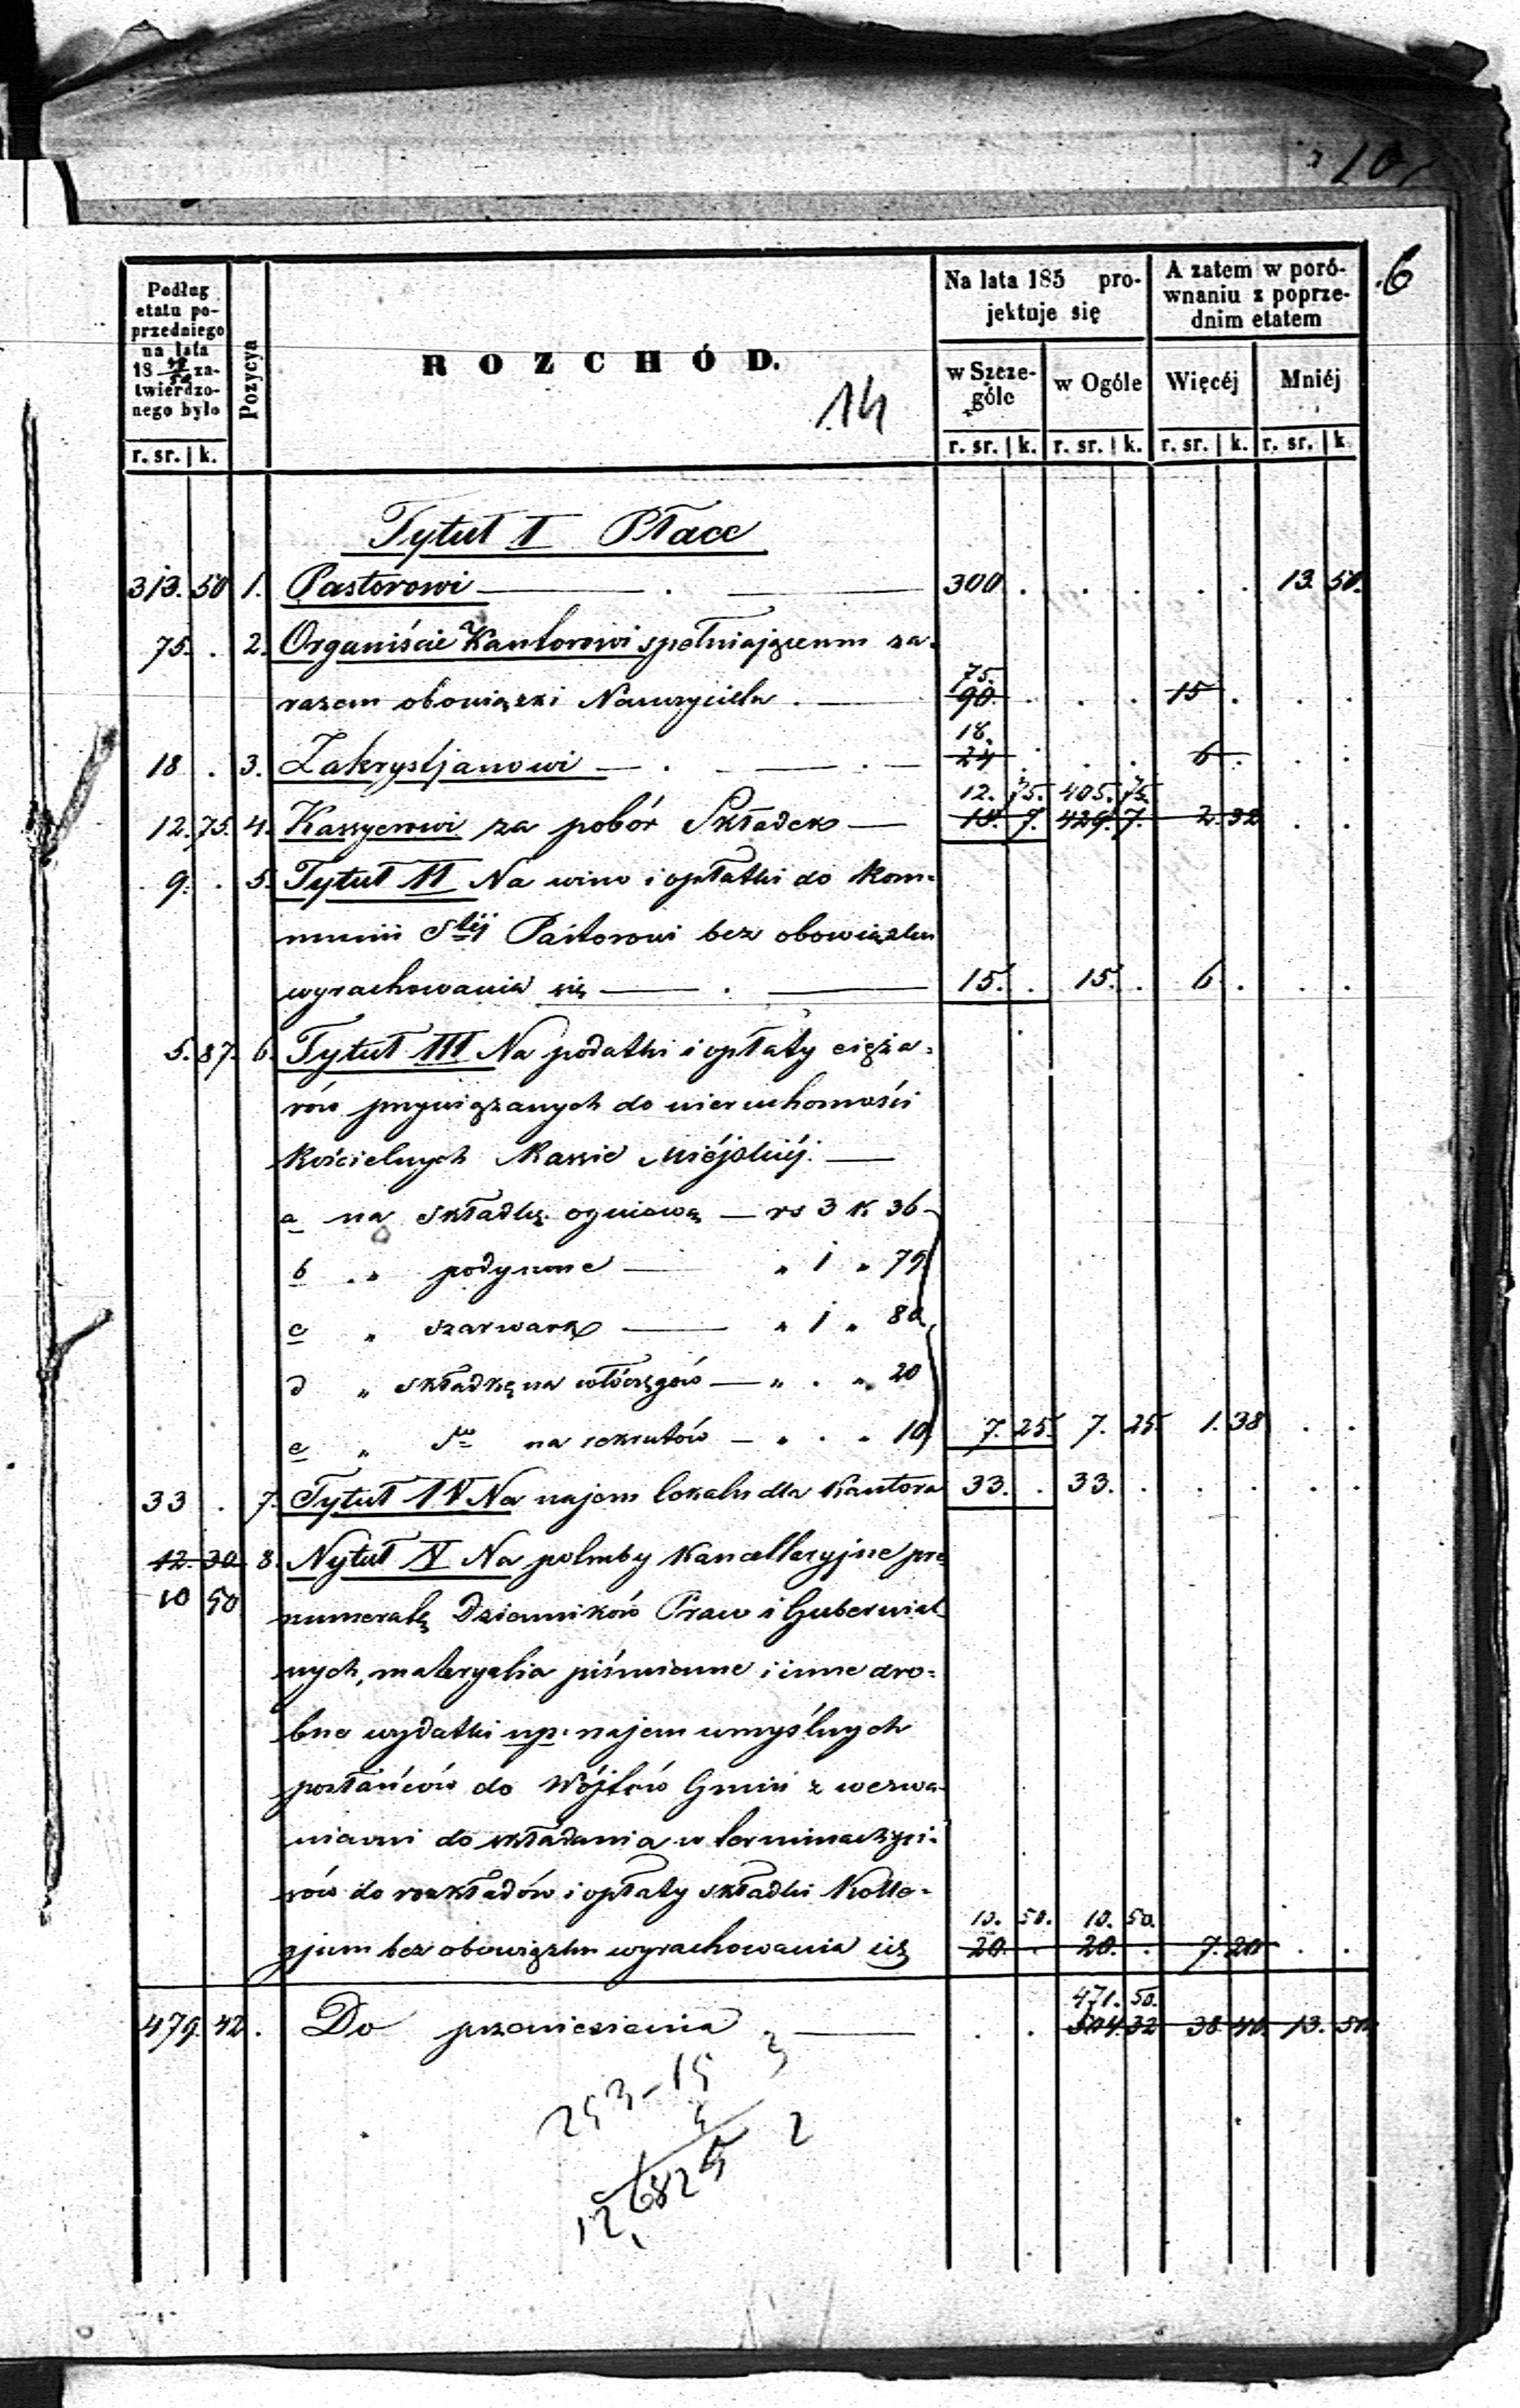 10
6
Podług etatu po-przedniego na lata 18 49/50 za-twierdzo-nego było
Pozycya
ROZCHÓD.
14
Na lata 185 pro-jektuje się
A zatem w poró-wnaniu z poprze-dnim etatem
w Szcze-góle
w Ogóle
Więcéj
Mniéj
r. sr. | k.
r. sr. | k. r. sr. | k. r. sr. | k. r. sr. | k.
Tytuł I Płace
313. 50 1. Pastorowi — . — 300 . . . . . 13. 50.
75. . 2. Organiście Kantorowi spełniającemu za-
75.
razem obowiązki Nauczyciela . — 90. . . . 15 . . .
18.
18 . 3. Zakrystjanowi — . — . — 24 . . . 6 . . .
12. 75. 405. 75.
12. 75. 4. Kassyerowi za pobór Składek — 15. 7. 429. 7. 2. 32 . .
9. . 5. Tytuł II Na wino i opłatki do kom-
munii Stéj Pastorowi bez obowiązku
wyrachowania się — . — 15. . 15. . 6 . . .
5. 87. 6. Tytuł III Na podatki i opłaty cięża-
rów przywiązanych do nieruchomości
Kościelnych Kassie Miéjskiéj. —
a na składkę ogniową — rs 3 k 36
b „ podymne — „ 1 „ 79
c „ szarwark — „ 1 „ 80
d „ składkę na włóczęgów — „ . „ 20
e „ do na rekrutów — „ . „ 10 7. 25. 7. 25. 1. 38 . .
33 . 7. Tytuł IV Na najem lokalu dla Kantora 33. . 33. . . . . .
12. 30 8. Nytuł V Na potrzeby Kancellaryjne pre
10 50 numeratę Dzienników Praw i Gubernial
nych, materyalia piśmienne i inne dro-
bne wydatki np. najem umyślnych
posłańców do Wójtów Gmin z wezwa-
niami do składania w terminach
rów do rozkładów i opłaty składki Kolle-
10. 50. 10. 50.
gjum bez obowiązku wyrachowania się 20. . 20. . 7. 20 . .
471. 50.
479. 42. Do przeniesienia . — . . 504. 32 38. 40. 13. 50
253-15 3
5 2
6825
12